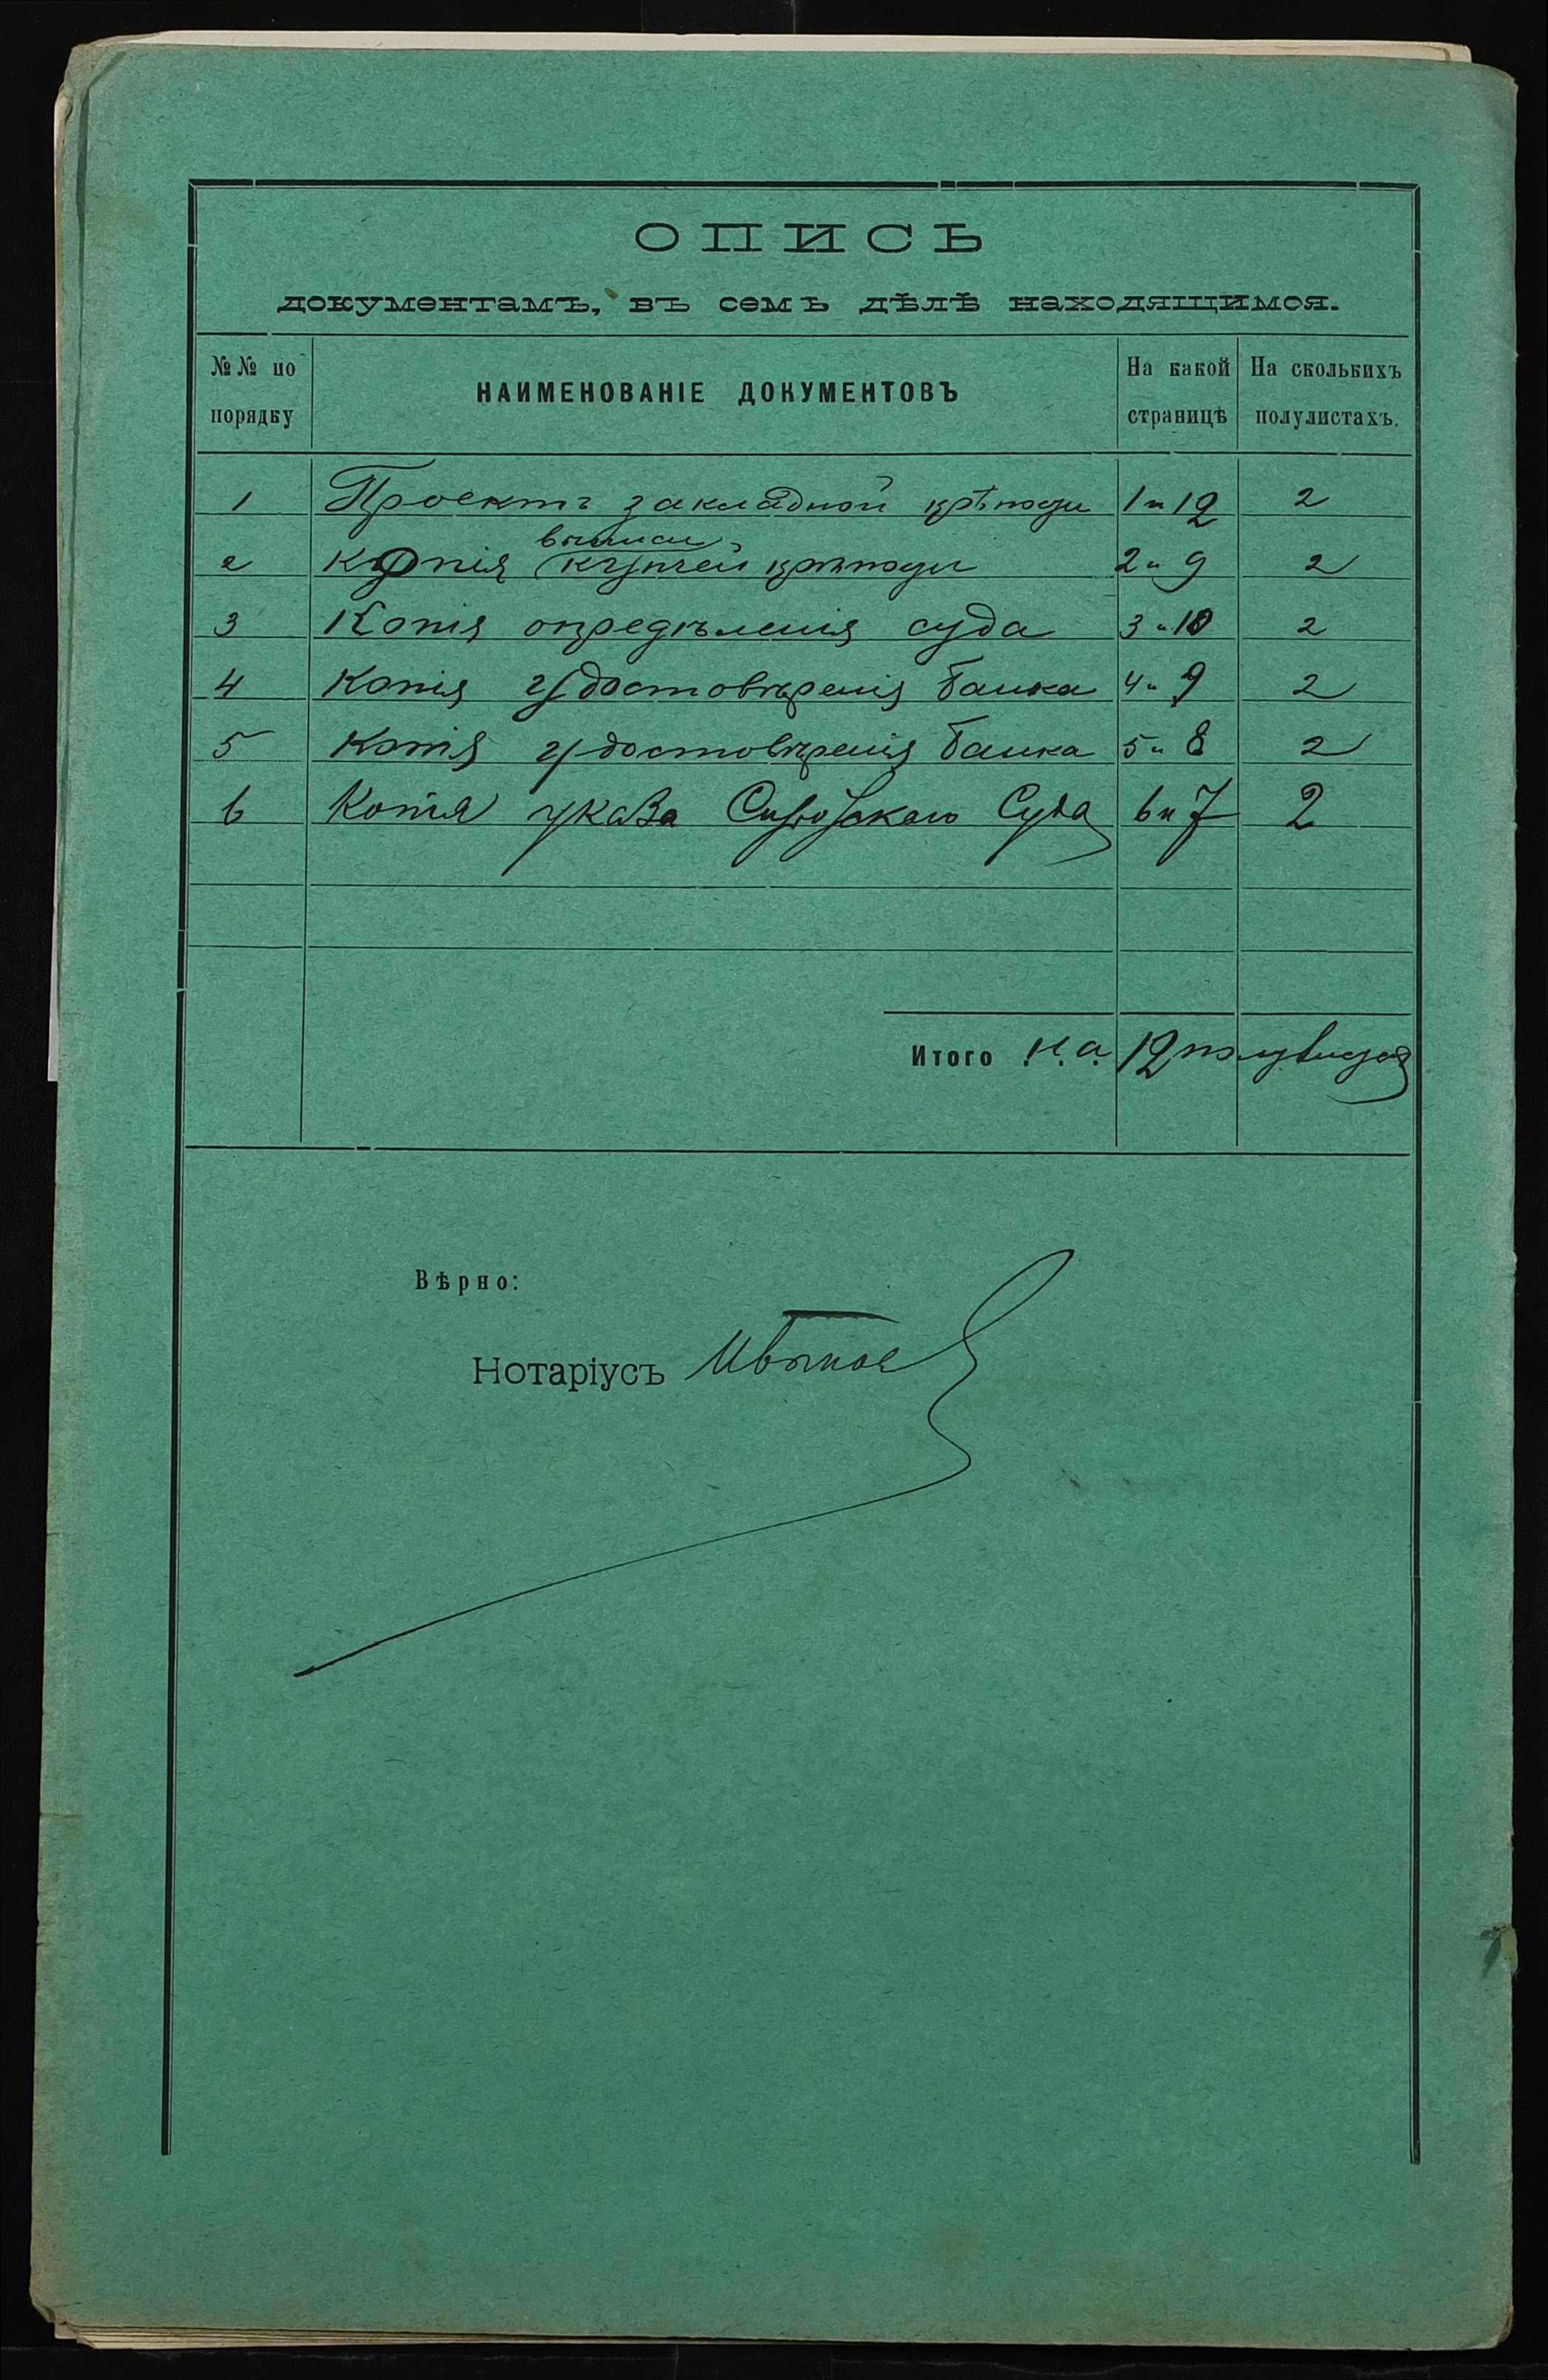 ОПИСЬ
документамъ, въ семъ дѣлѣ находящимся.
№№ по порядку
НАИМЕНОВАНІЕ ДОКУМЕНТОВЪ
На какой страницѣ
На сколькихъ полулистахъ.
1 Проектъ закладной крѣпости 1 и 12 2
выписи
2 Копія купчей крѣпости 2 и 9 2
3 Копія опредѣленія суда 3 и 10 2
4 Копія удостовѣренія банка 4 и 9 2
5 Копія удостовѣренія банка 5 и 8 2
6 Копія указа Сиротскаго Суда 6 и 7 2
Итого на 12 полулистахъ
Вѣрно:
Нотаріусъ